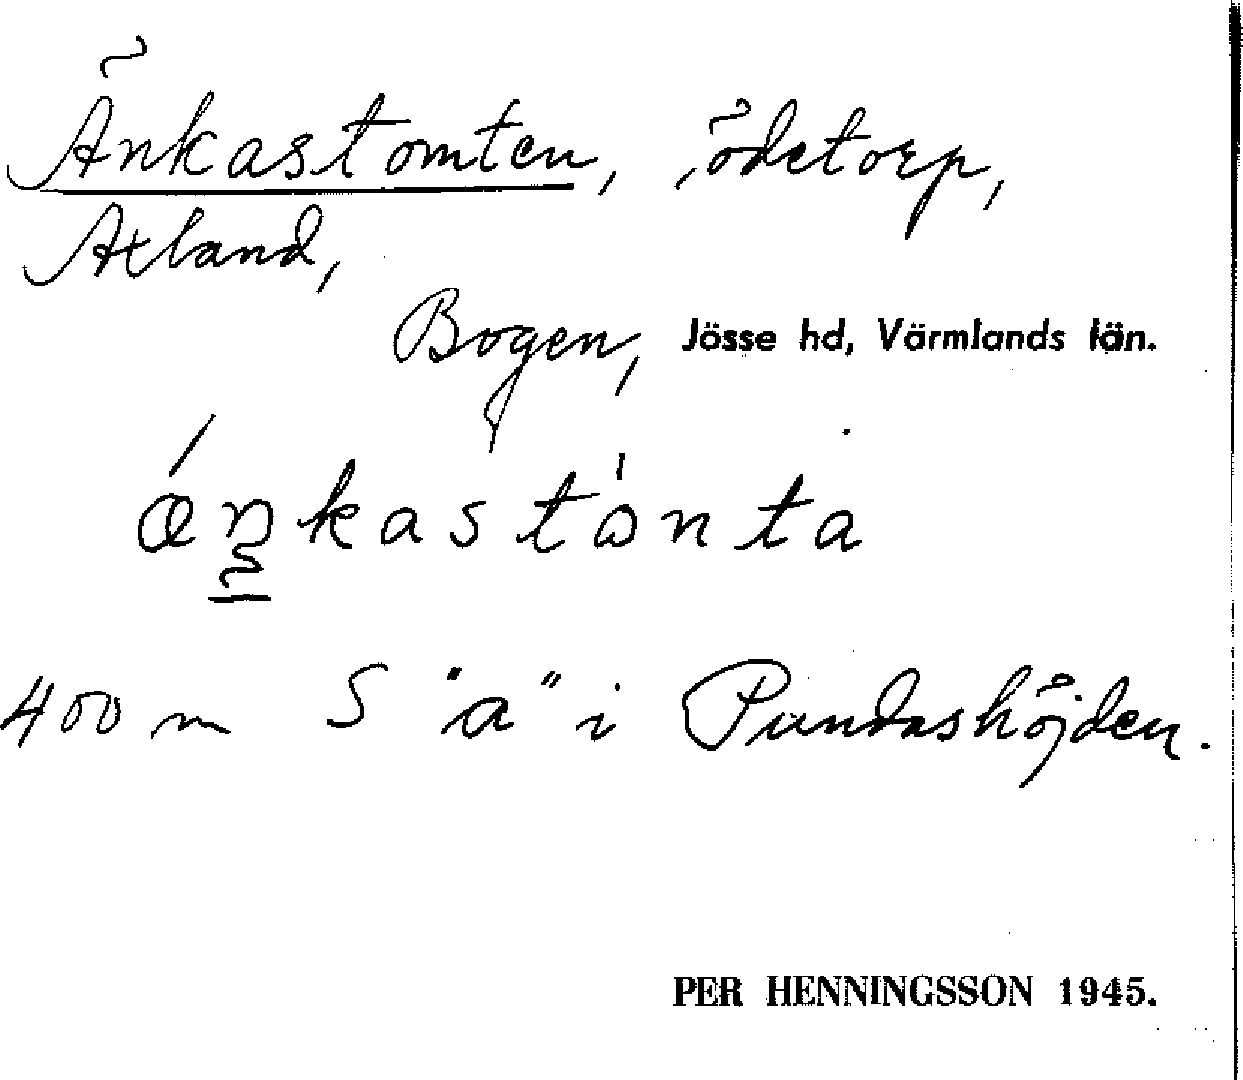 Änkastomten, ödetorp,
Axland,
Bogen, Jösse hd, Värmlands län.
ǽnkastònta
400 m S "a" i Pundashöjden.
PER HENNINGSSON 1945.